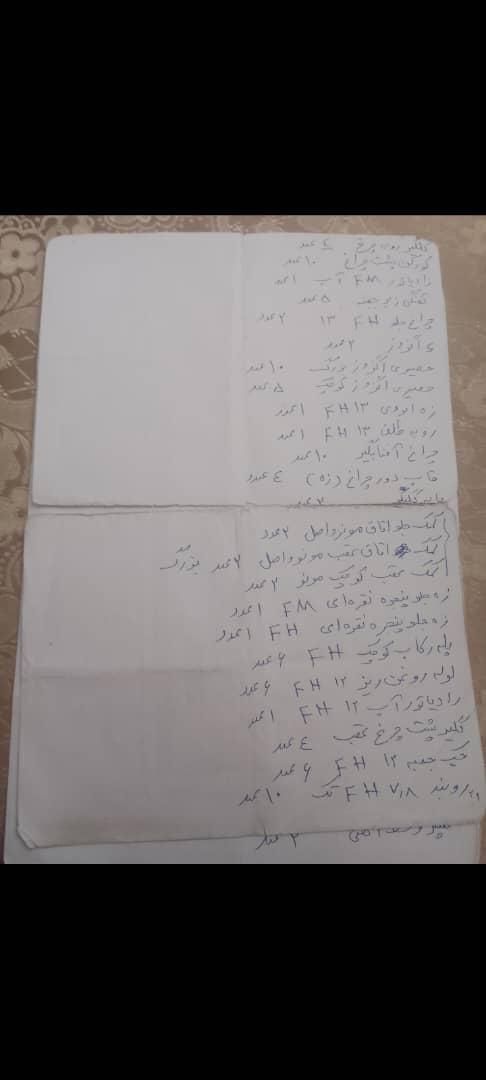 گلگیر روی چرخ ۲ عدد
پشت چراغ ۱۰ عدد
رادیاتور FM آب ۱ عدد
زیر جعبه ۸ عدد
چراغ جلو FH ۱۳ ۲ عدد
اگزوز ۲ عدد
حصیری اگزوز بزرگ ۱۰ عدد
حصیری اگزوز کوچک ۸ عدد
زه ابروی FH ۱۳ ۱ عدد
رو طلق FH ۱۳ ۱ عدد
چراغ آفتابگیر ۱۰ عدد
قاب دور چراغ (زه) ۴ عدد
۲ عدد
کمک جلو اتاق مونو اصل ۲ عدد
کمک اتاق عقب مونو اصل ۲ عدد بزرگ
کمک عقب کوچک مونو ۲ عدد
زه جلو پنجره نقره‌ای FM ۱ عدد
زه جلو پنجره نقره‌ای FH ۱ عدد
پله رکاب کوچک FH ۶ عدد
لوله روغن ریز FH ۱۲ ۶ عدد
رادیاتور آب FH ۱۲ ۱ عدد
گلگیر پشت چرخ عقب ۴ عدد
جعبه FH ۱۲ ۶ عدد
FH ۷,۸ تک ۱۰ عدد
۲ عدد